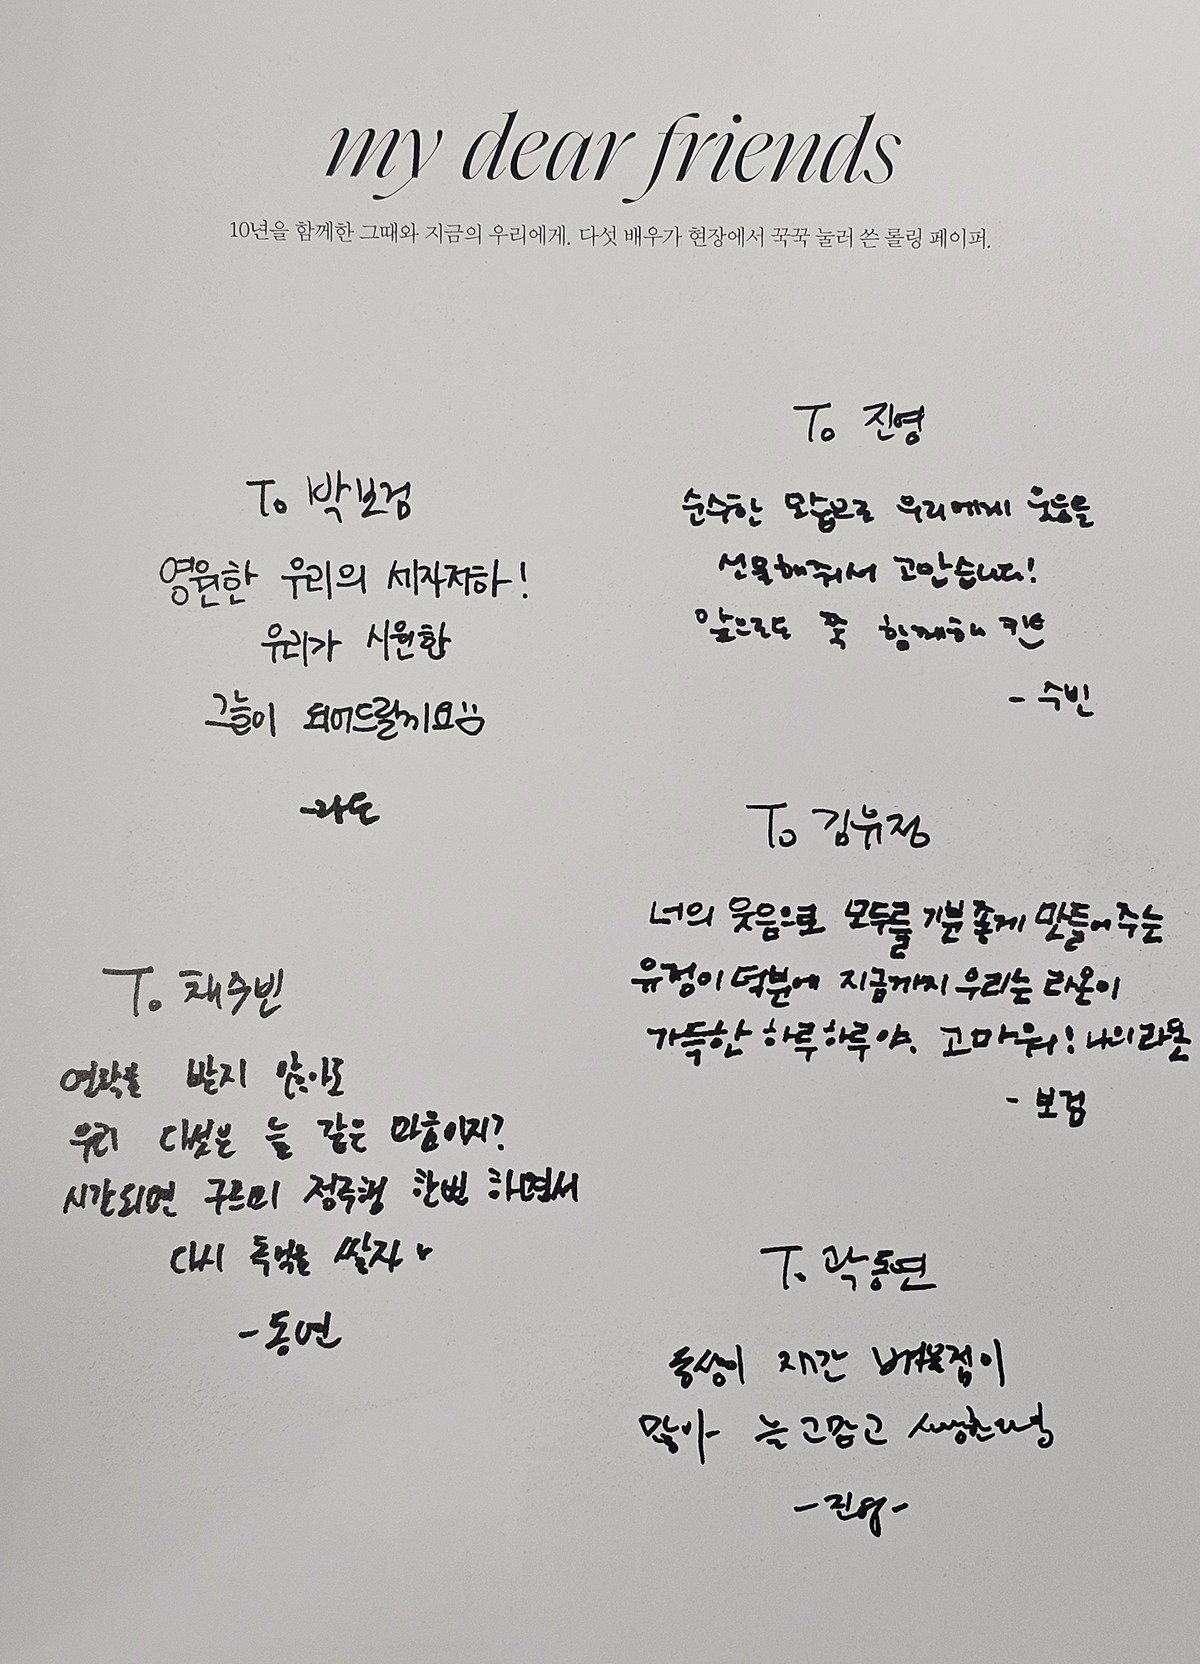 my dear friends
10년을 함께한 그때와 지금의 우리에게. 다섯 배우가 현장에서 꾹꾹 눌러 쓴 롤링 페이퍼.
To 박보검
영원한 우리의 세자저하!
우리가 시원한
그늘이 되어드랄께요
-라온
To 진영
순수한 모습으로 우리에게 웃음을
선물해줘서 고맙습니다!
앞으로도 쭉 함께해
- 수빈
To 김유정
너의 웃음으로 모두를 기분 좋게 만들어 주는
유정이 덕분에 지금까지 우리는 라온이
가득한 하루하루야. 고마워! 나의 라온
- 보검
To 채수빈
연락을 받지 않아도
우리 다섯은 늘 같은 마음이지?
시간되면 구르미 정주행 한번 하면서
다시 추억을 쌓자
- 동연
To 곽동연
동생이 재간 배울점이
많아 늘 고맙고
- 진영 -